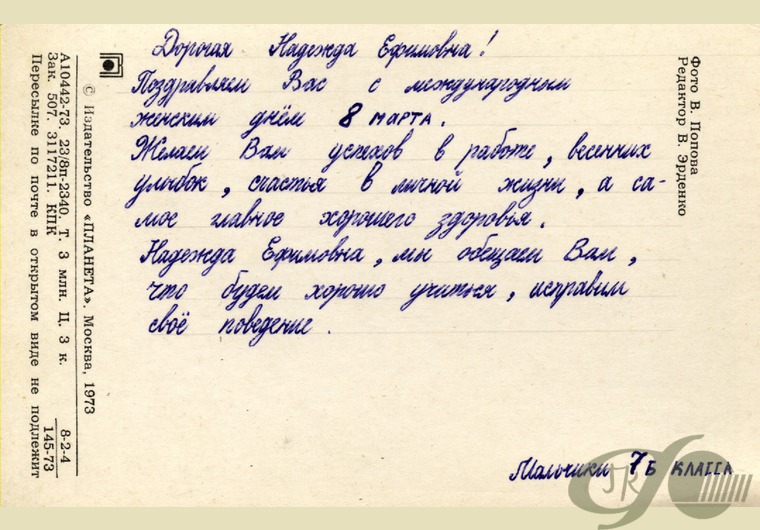 Дорогая Надежда Ефимовна!
Поздравляем Вас с международным
женским днём 8 МАРТА.
Желаем Вам успехов в работе, весенних
улыбок, счастья в личной жизни, а са-
мое главное хорошего здоровья.
Надежда Ефимовна, мы обещаем Вам,
что будем хорошо учиться, исправим
своё поведение.
Мальчики 7Б КЛАССА
Фото В. Попова
Редактор В. Эрденко
© Издательство «ПЛАНЕТА». Москва, 1973
А10442-73. 23/8п-2340. Т. 3 млн. Ц. 3 к.
Зак. 507. 3117211. КПК
8-2-4
145-73
Пересылке по почте в открытом виде не подлежит
JRC